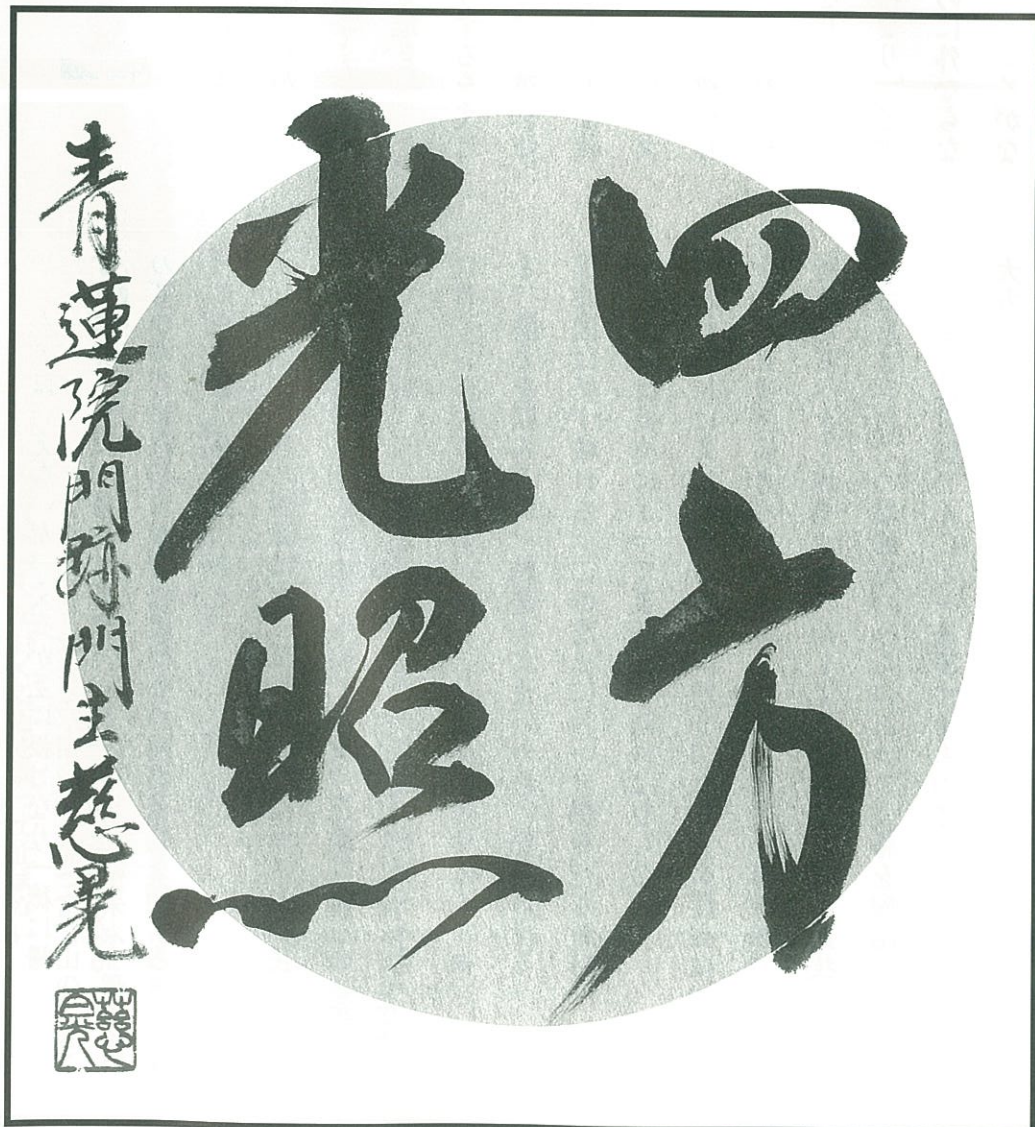 四方
光照
青蓮院門跡門主慈晃
慈晃